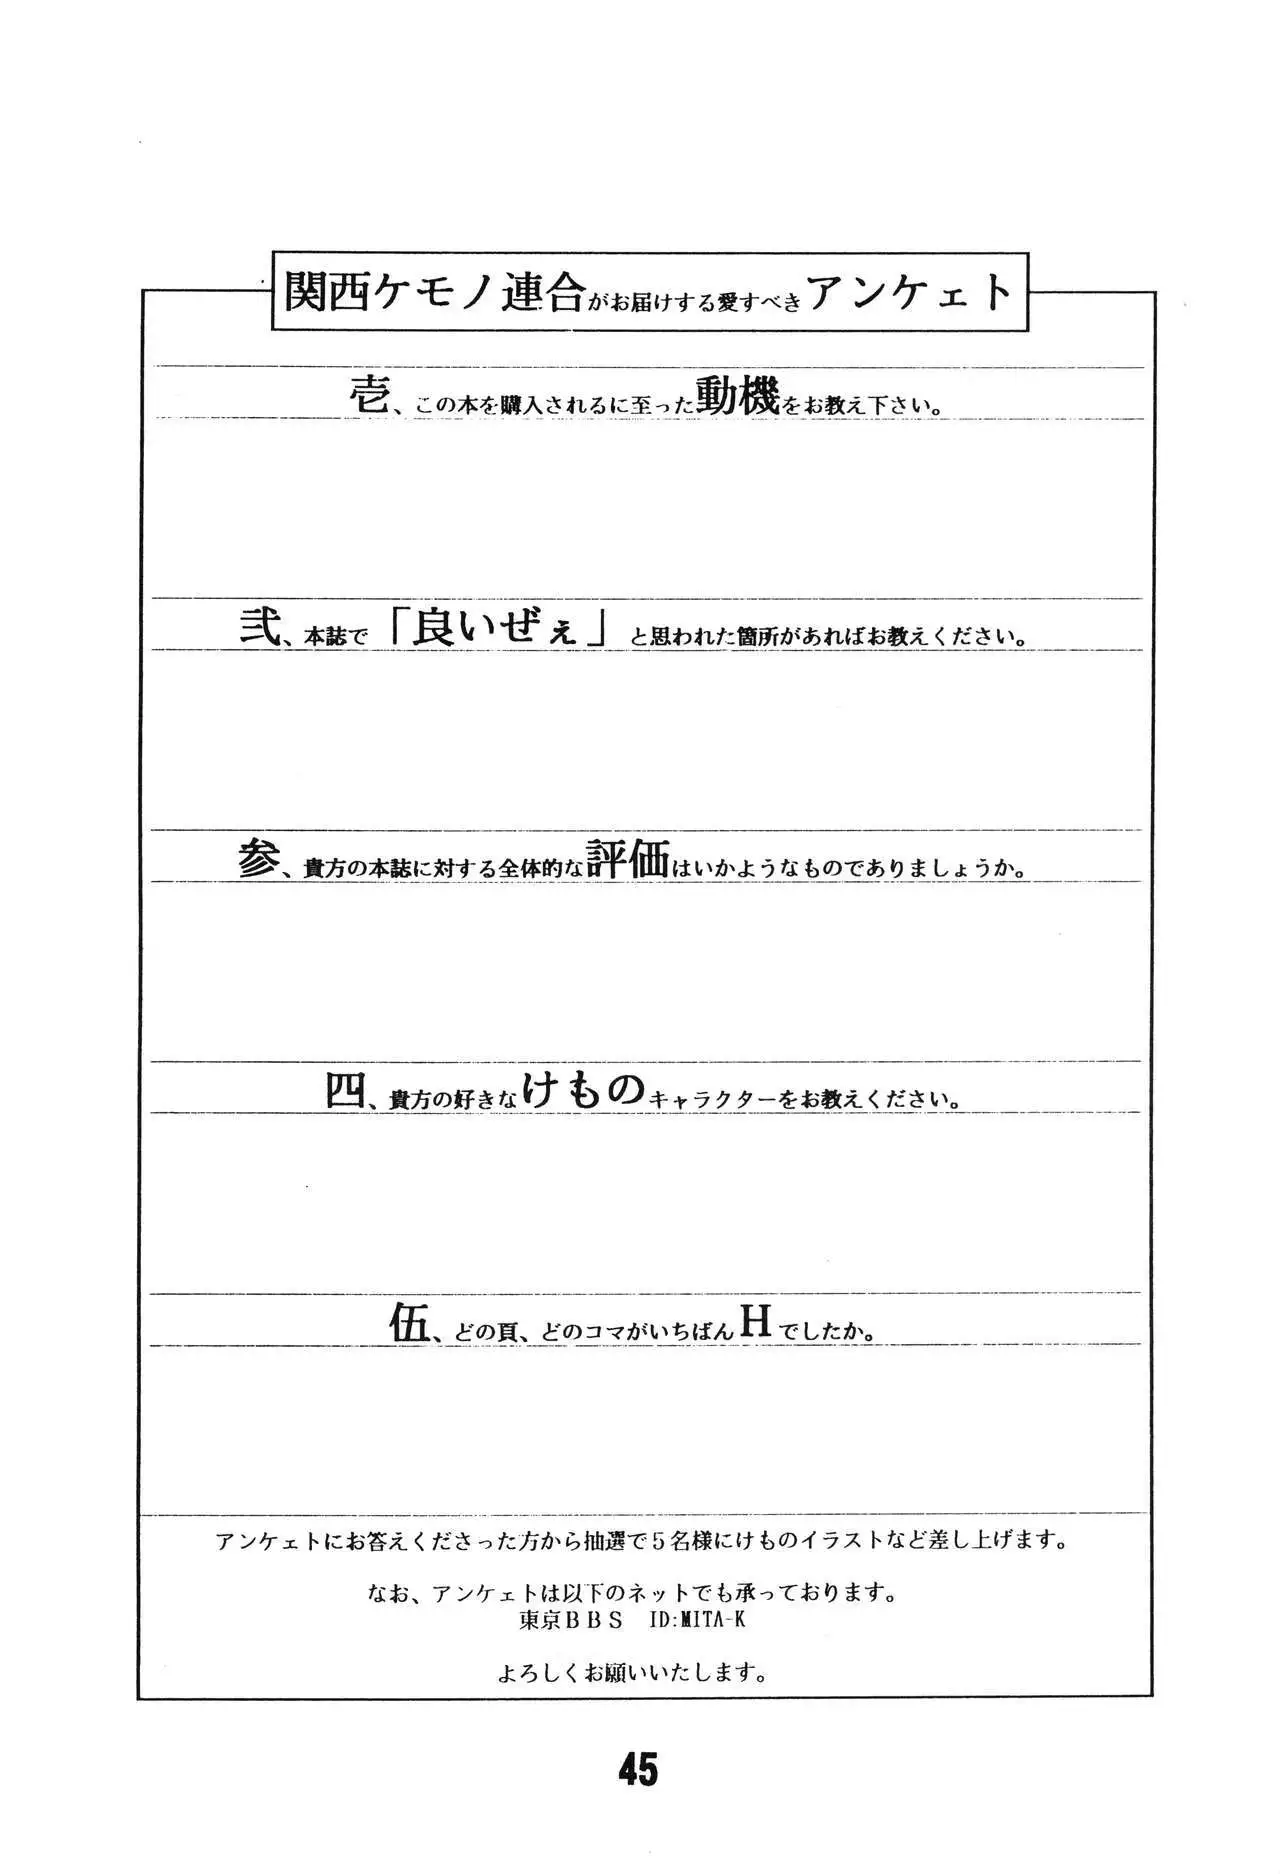 関西ケモノ連合がお届けする愛すべきアンケェト
壱、この本を購入されるに至った動機をお教え下さい。
弐、本誌で「良いぜぇ」と思われた箇所があればお教えください。
参、貴方の本誌に対する全体的な評価はいかようなものでありましょうか。
四、貴方の好きなけものキャラクターをお教えください。
伍、どの頁、どのコマがいちばんHでしたか。
アンケェトにお答えくださった方から抽選で5名様にけものイラストなど差し上げます。
なお、アンケェトは以下のネットでも承っております。
東京BBS ID:MITA-K
よろしくお願いいたします。
45